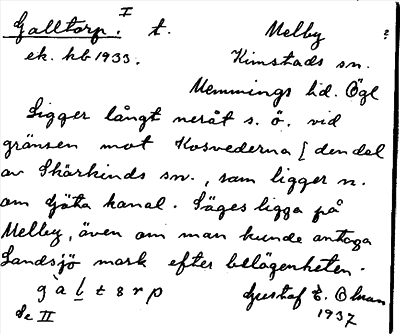 Galltorp. I t. Melby ?
ek. hb 1933. Kimstads sn.
Memmings hd. Ögl
Ligger långt neråt s. ö. vid
gränsen mot Kosvederna [den del
av Skärkinds sn., som ligger n.
om Göta kanal. Säges ligga på
Melby, även om man kunde antaga
Landsjö mark efter belägenheten.
g à l t s r p Gustaf E. Olman
Se II 1937